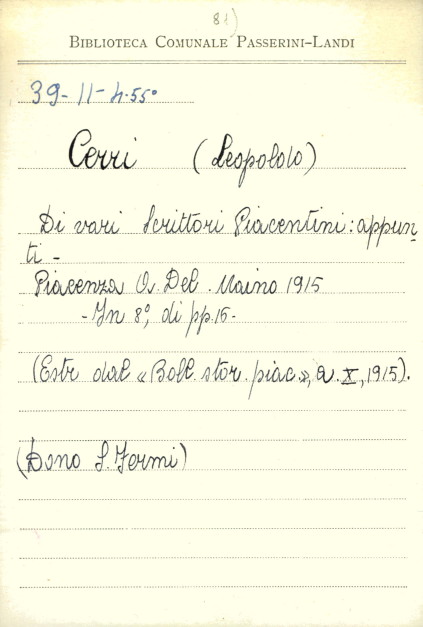 81)
BIBLIOTECA COMUNALE PASSERINI-LANDI
39-11-4.55°
Cerri (Leopoldo)
Di vari Scrittori Piacentini: appun-
ti -
Piacenza A. Del. Maino 1915
- In 8°, di pp. 15 -
(Estr. dal « Boll. stor. piac.», a. X, 1915).
(Dono S. Fermi)